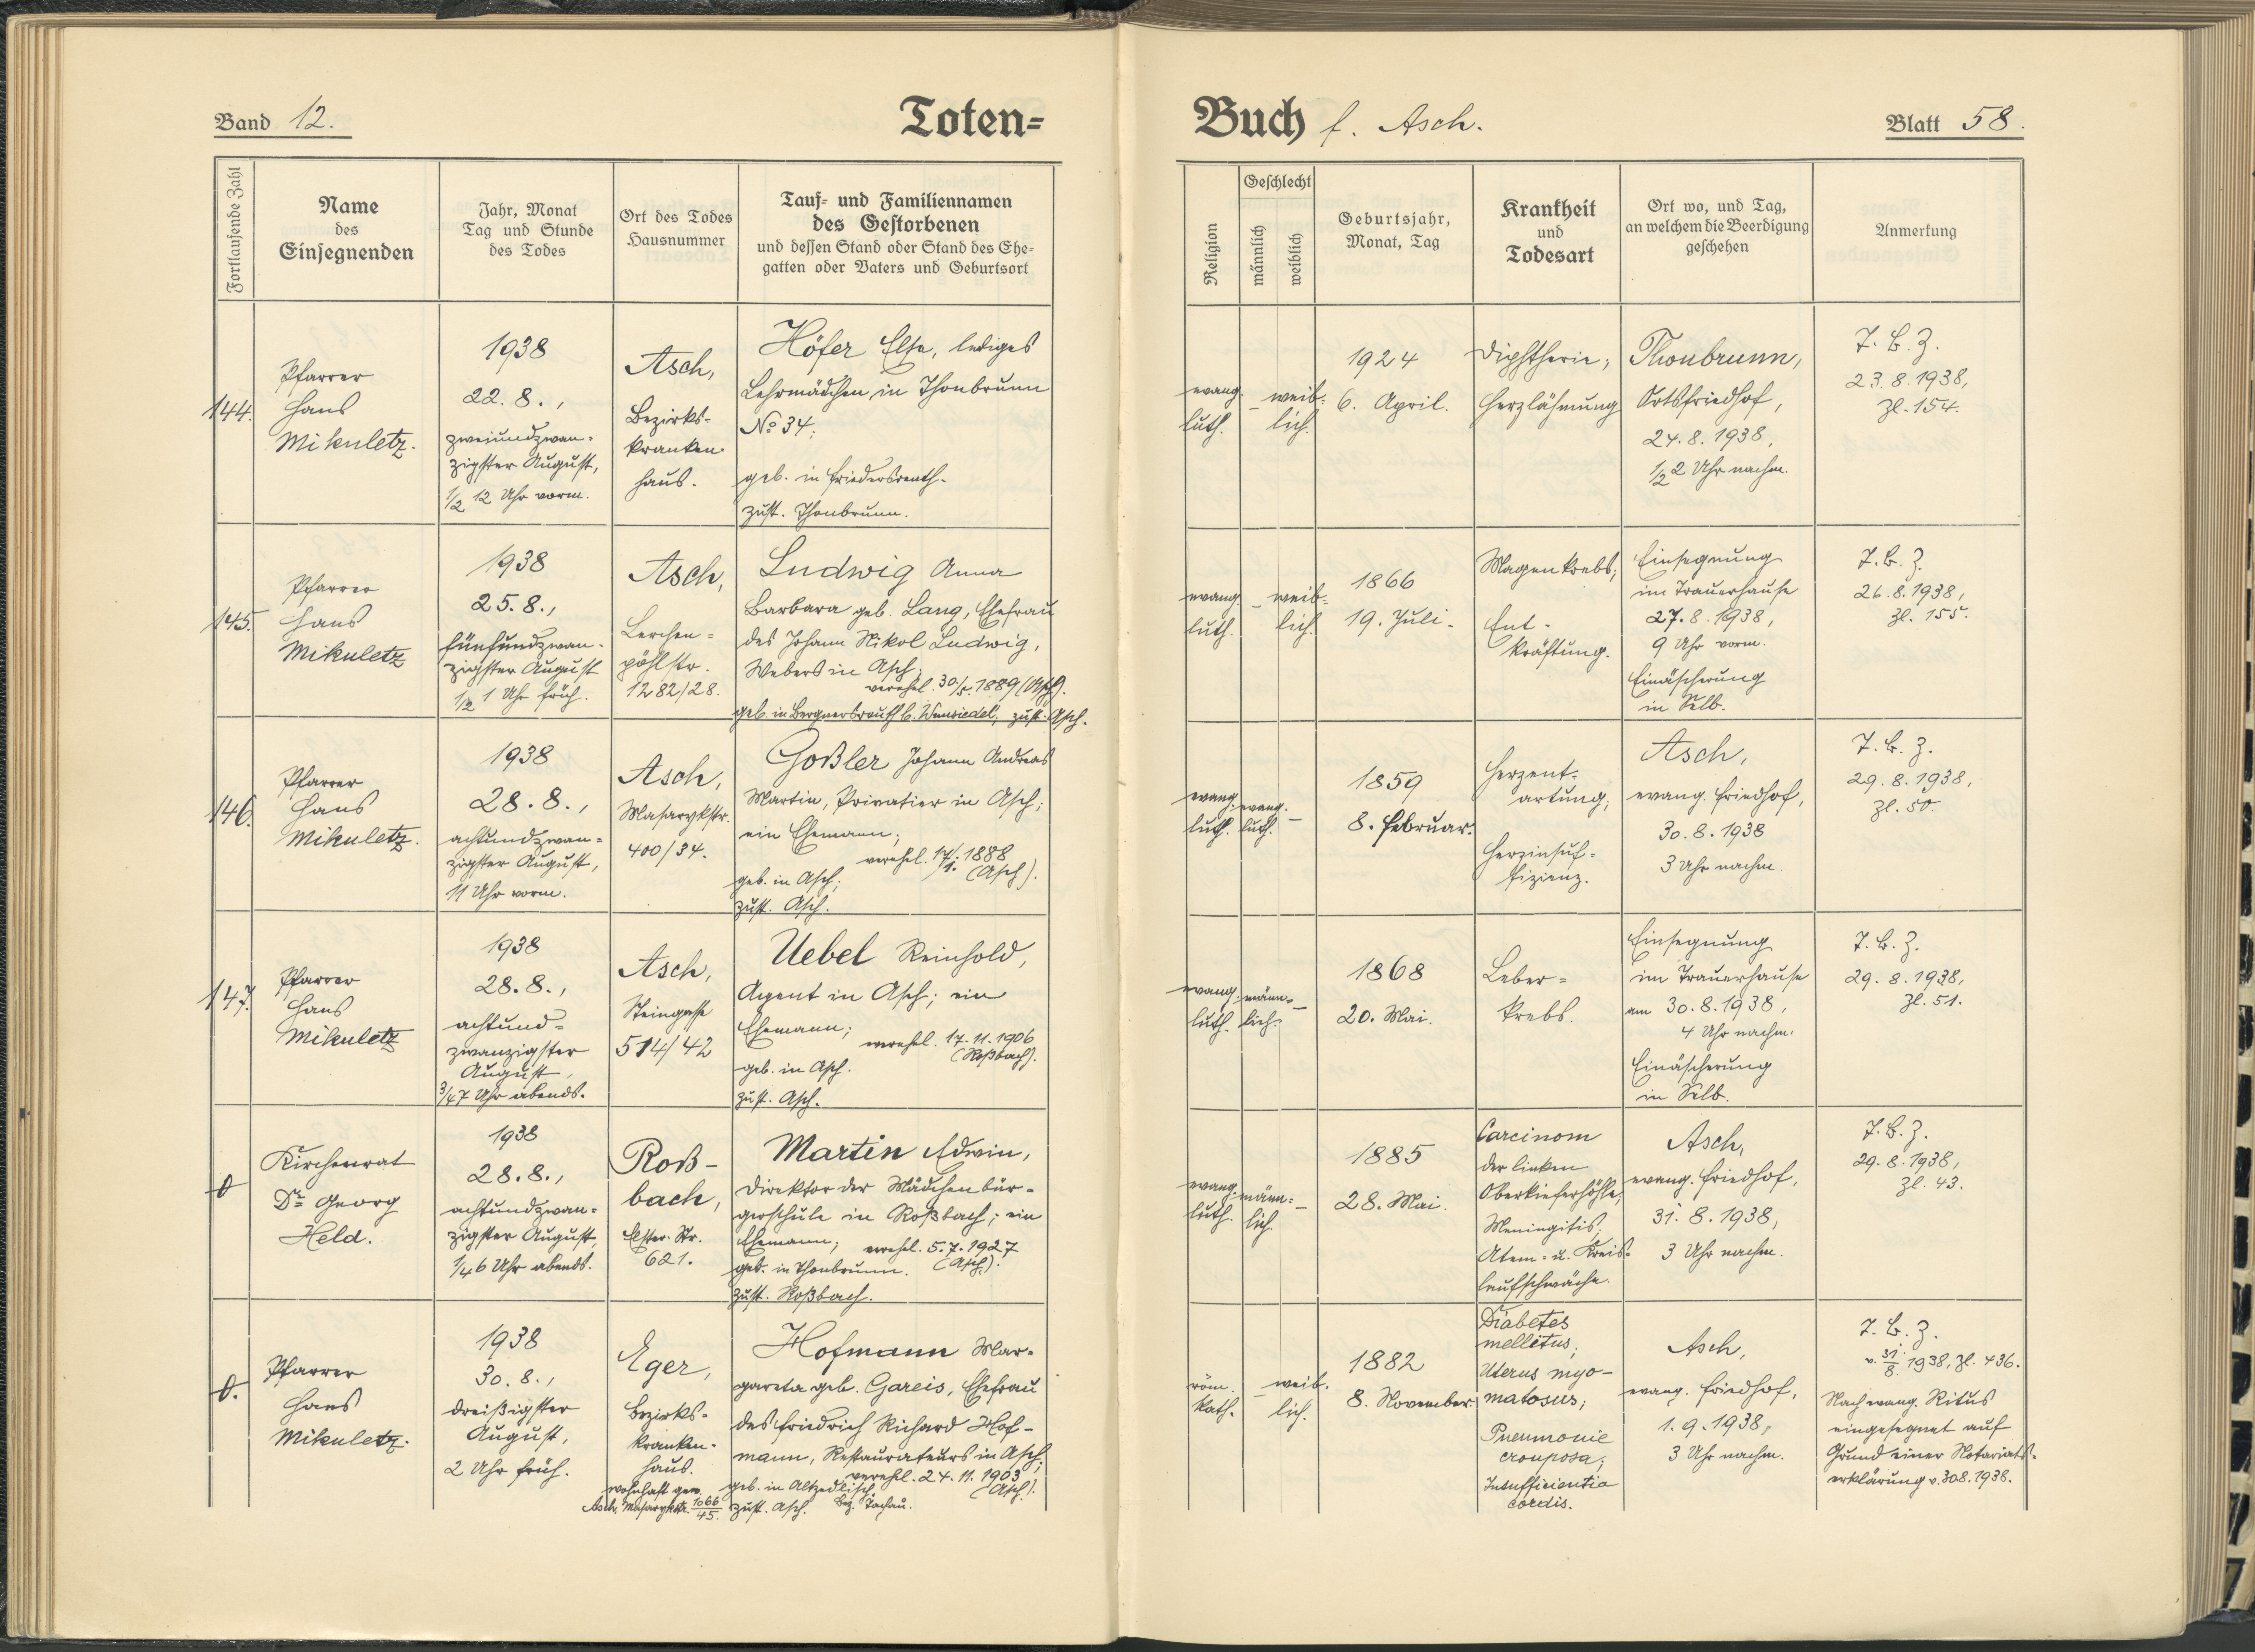 Band 12.
Toten-
Fortlaufende Zahl
Name
des
Einsegnenden
Jahr, Monat
Tag und Stunde
des Todes
Ort des Todes
Hausnummer
Tauf- und Familiennamen
des Gestorbenen
und dessen Stand oder Stand des Ehe-
gatten oder Vaters und Geburtsort
144.
Pfarrer
Hans
Mikuletz.
1938
22. 8.,
zweiundzwan-
zigster August,
1/2 12 Uhr vorm.
Asch,
Bezirks-
kranken-
haus.
Höfer Elsa, lediges
Lehrmädchen in Thonbrunn
No 34;
geb. in Friedersreuth.
zust. Thonbrunn.
145.
Pfarrer
Hans
Mikuletz
1938
25. 8.,
fünfundzwan-
zigster August
1/2 1 Uhr früh.
Asch,
Lerchen-
pöhlstr.
1282/28.
Ludwig Anna
Barbara geb. Lang, Ehefrau
des Johann Nikol Ludwig,
Webers in Asch;
verehel. 30/5. 1889 (Asch).
geb. in Bergnersreuth b. Wunsiedel, zust. Asch.
146.
Pfarrer
Hans
Mikuletz.
1938
28. 8.,
achtundzwan-
zigster August,
11 Uhr vorm.
Asch,
Masarykstr.
400/34.
Goßler Johann Andreas
Martin, Privatier in Asch;
ein Ehemann;
verehel. 17/1. 1888
(Asch).
geb. in Asch;
zust. Asch.
147.
Pfarrer
Hans
Mikuletz
1938
28. 8.,
achtund-
zwanzigster
August,
3/4 7 Uhr abends.
Asch,
Steingasse
514/42
Uebel Reinhold,
Agent in Asch; ein
Ehemann;
verehel. 17. 11. 1906
(Roßbach).
geb. in Asch.
zust. Asch.
0
Kirchenrat
Dr Georg
Held.
1938
28. 8.,
achtundzwan-
zigster August,
1/4 6 Uhr abends.
Roß-
bach,
Elster-Str.
621.
Martin Edwin,
Direktor der Mädchenbür-
gerschule in Roßbach; ein
Ehemann; verehel. 5. 7. 1927
(Asch).
geb. in Thonbrunn.
zust. Roßbach.
0.
Pfarrer
Hans
Mikuletz.
1938
30. 8.,
dreißigster
August,
2 Uhr früh.
Eger,
Bezirks-
kranken-
haus.
wohnhaft gew.
Asch, Masarykstr. 1066/45.
Hofmann Mar-
gareta geb. Gareis, Ehefrau
des Friedrich Richard Hof-
mann, Restaurateurs in Asch;
verehel. 24. 11. 1903
(Asch).
geb. in Altzedlisch,
Bez. Tachau.
zust. Asch.
Buch f. Asch.
Blatt 58.
Religion
Geschlecht
männlich
weiblich
Geburtsjahr,
Monat, Tag
Krankheit
und
Todesart
Ort wo, und Tag,
an welchem die Beerdigung
geschehen
Anmerkung
evang.
luth.
–
weib-
lich.
1924
6. April.
Diphtherie;
Herzlähmung
Thonbrunn,
Ortsfriedhof,
24. 8. 1938,
1/2 2 Uhr nachm.
T. B. Z.
23. 8. 1938,
Zl. 154.
evang.
luth.
–
weib-
lich.
1866
19. Juli.
Magenkrebs;
Ent-
kräftung.
Einsegnung
im Trauerhause
27. 8. 1938,
9 Uhr vorm.
Einäscherung
in Selb.
T. B. Z.
26. 8. 1938,
Zl. 155.
evang.
luth.
evang.
luth.
–
1859
8. Februar.
Herzent-
artung;
Herzinsuf-
fizienz.
Asch,
evang. Friedhof,
30. 8. 1938
3 Uhr nachm.
T. B. Z.
29. 8. 1938,
Zl. 50.
evang.
luth.
männ-
lich.
–
1868
20. Mai.
Leber-
krebs.
Einsegnung
im Trauerhause
am 30. 8. 1938,
4 Uhr nachm.
Einäscherung
in Selb.
T. B. Z.
29. 8. 1938,
Zl. 51.
evang.
luth.
männ-
lich.
–
1885
28. Mai.
Carcinom
der linken
Oberkieferhöhle,
Meningitis;
Atem- u. Kreis-
laufschwäche.
Asch,
evang. Friedhof,
31. 8. 1938,
3 Uhr nachm.
T. B. Z.
29. 8. 1938,
Zl. 43.
röm.
kath.
–
weib-
lich.
1882
8. November.
Diabetes
mellitus;
Uterus myo-
matosus;
Pneumonie
crouposa;
Insufficientia
cordis.
Asch,
evang. Friedhof,
1. 9. 1938,
3 Uhr nachm.
T. B. Z.
v. 31/8. 1938, Zl. 436.
Nach evang. Ritus
eingesegnet auf
Grund einer Notariats-
erklärung v. 30.8. 1938.